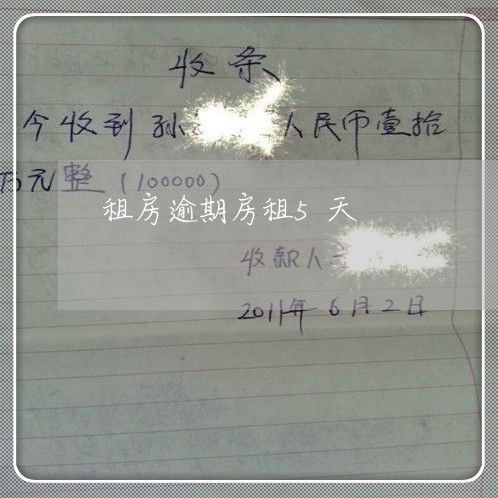 收条
今收到孙 人民币壹拾
万元整（100000）
租房逾期房租5 天
收款人
2011年6月2日